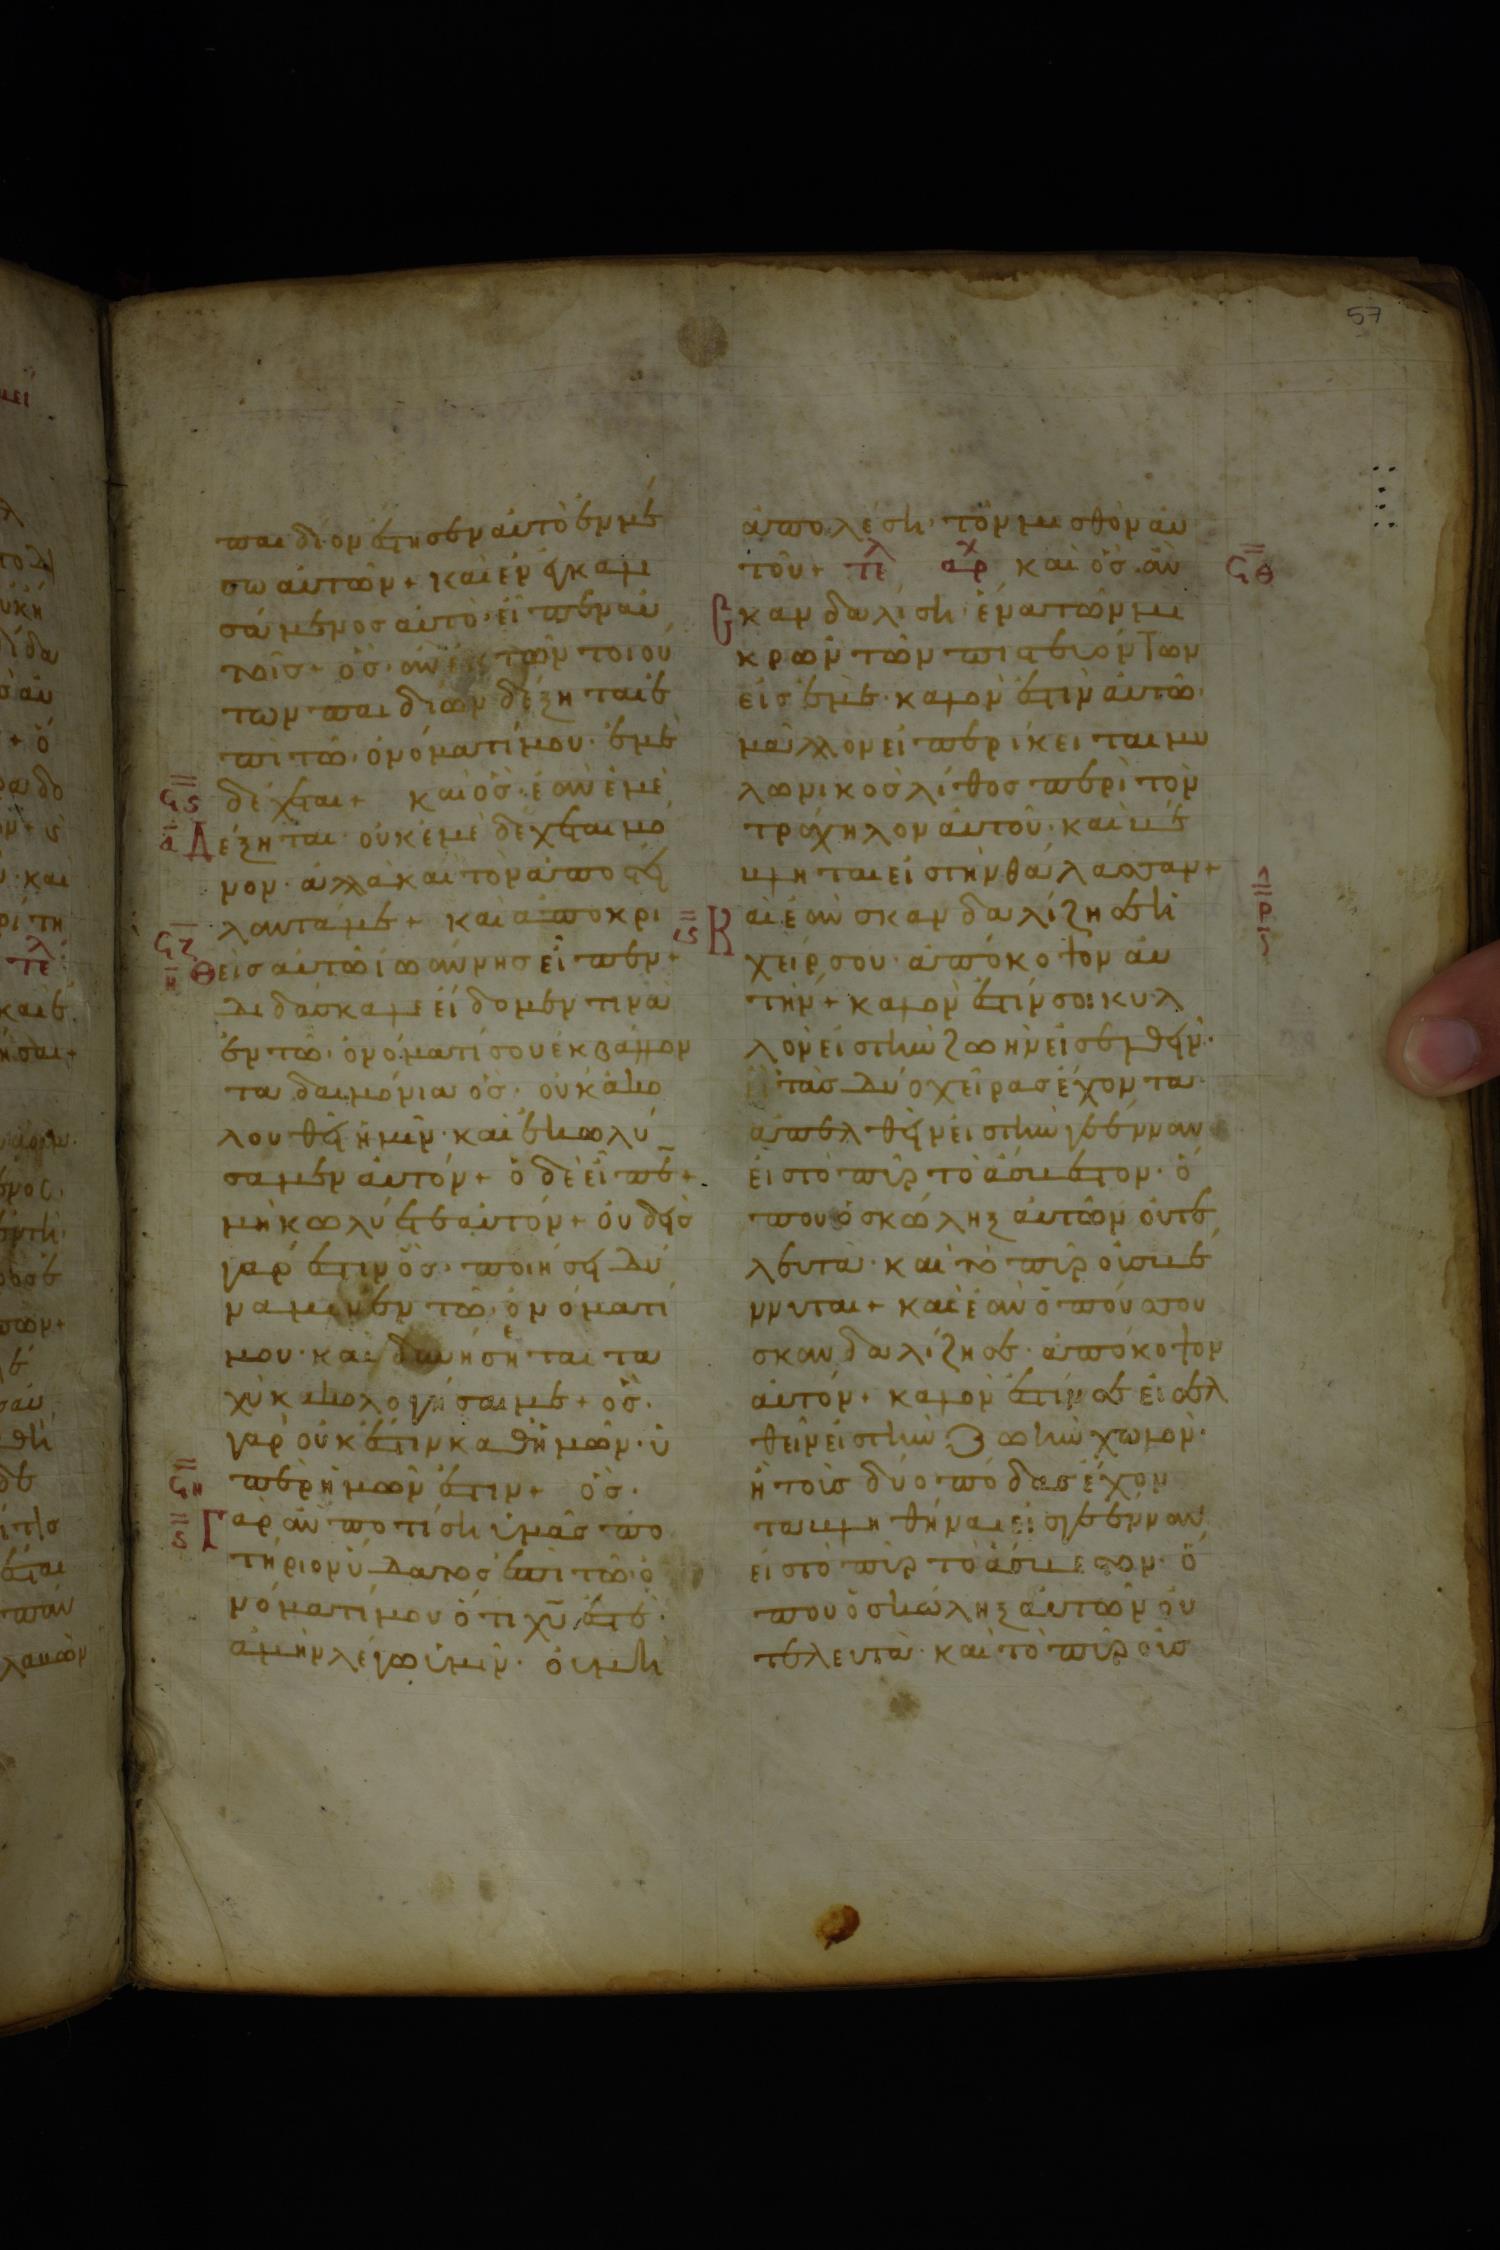 57
παιδίον ἔστησεν αὐτὸ ἐν μέ
σω αὐτῶν + καὶ ἐναγκαλι
σάμενος αὐτὸ· εἶπεν αὐ
τοῖς + ὃς· ἂν ἐκ τῶν τοιού
των παιδίων δέξηται ἐ
πὶ τῶ· ὀνόματί μου· ἐμὲ
δέχεται + καὶ ὃς· ἐὰν ἐμὲ
Δέξηται· οὐκ ἐμὲ δέχεται μό
νον· ἀλλὰ καὶ τὸν ἀποστεί
λαντά με + καὶ ἀποκρι
Θεὶς αὐτῶ ἰωάννης εἶπεν +
διδάσκαλε εἴδομέν τινὰ
ἐν τῶ· ὀνόματί σου ἐκβάλλον
τα δαιμόνια ὃς· οὐκ ἀκο
λουθεῖ ἡμῖν· καὶ ἐκωλύ
σαμεν αὐτόν + ὁ δὲ εἶπεν +
μὴ κωλύετε αὐτόν + οὐδεὶς
γάρ ἐστιν ὃς· ποιήσει δύ
ναμιν ἐν τῶ· ὀνόματί
μου· καὶ δυνήσηεται τα
χὺ κακολογῆσαι με + ὃς·
γὰρ οὐκ ἔστιν καθ ἡμῶν· ὑ
πὲρ ἡμῶν ἐστιν + ὃς·
Γὰρ ἂν ποτίση ὑμᾶς πο
τήριον ὕδατος ἐπὶ τῶ· ὀ
νόματί μου ὅτι χῦ ἐστέ·
ἀμὴν λέγω ὑμῖν· οὐ μὴ
ἀπολέση· τὸν μισθὸν αὐ
τοῦ + τελ αρχ καὶ ὃς· ἂν
Σκανδαλίση· ἕνα τῶν μι
κρῶν τῶν πιστευόντων
εἰς ἐμὲ· καλόν ἐστιν αὐτῶ·
μᾶλλον εἰ περίκειται μυ
λωνικὸς λίθος περὶ τὸν
τράχηλον αὐτοῦ· καὶ βέ
βληται εἰς τὴν θάλασσαν +
Καὶ ἐὰν σκανδαλίζη σε ἡ
χείρ σου· ἀπόκοψον αὐ
τήν + καλόν ἐστίν σοι κυλ
λὸν εἰς τὴν ζωὴν εἰσελθεῖν·
ἢ τὰς δύο χεῖρας ἔχοντα·
ἀπελθεῖν εἰς τὴν γέενναν
εἰς τὸ πῦρ τὸ ἄσβεστον· ὅ
που ὁ σκώληξ αὐτῶν οὐ τε
λευτᾶ· καὶ τὸ πῦρ οὐ σβέ
ννυται + καὶ ἐὰν ὁ πούς σου
σκανδαλίζη σε· ἀπόκοψον
αὐτόν + καλόν ἐστίν σε εἰσελ
θεῖν εἰς τὴν ζωὴν χωλὸν·
ἢ τοὺς δύο πόδας ἔχον
τα βληθῆναι εἰς γέενναν
εἰς τὸ πῦρ τὸ ἄσβεστον· ὅ
που ὁ σκώληξ αὐτῶν οὐ
τελευτᾶ· καὶ τὸ πῦρ οὐ σ